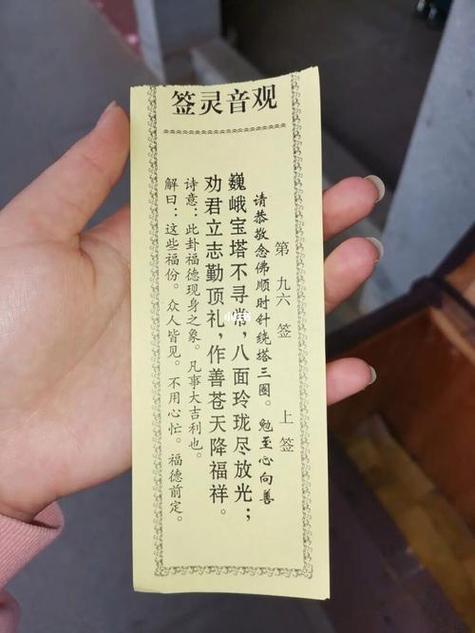 签灵音观
第九六签 上签
请恭敬念佛顺时针绕塔三圈。勉至心向善
巍峨宝塔不寻常，八面玲珑尽放光；
劝君立志勤顶礼，作善苍天降福祥。
诗意：此卦福德现身之象。凡事大吉利也。
解曰：这些福份。众人皆见。不用心忙。福德前定。